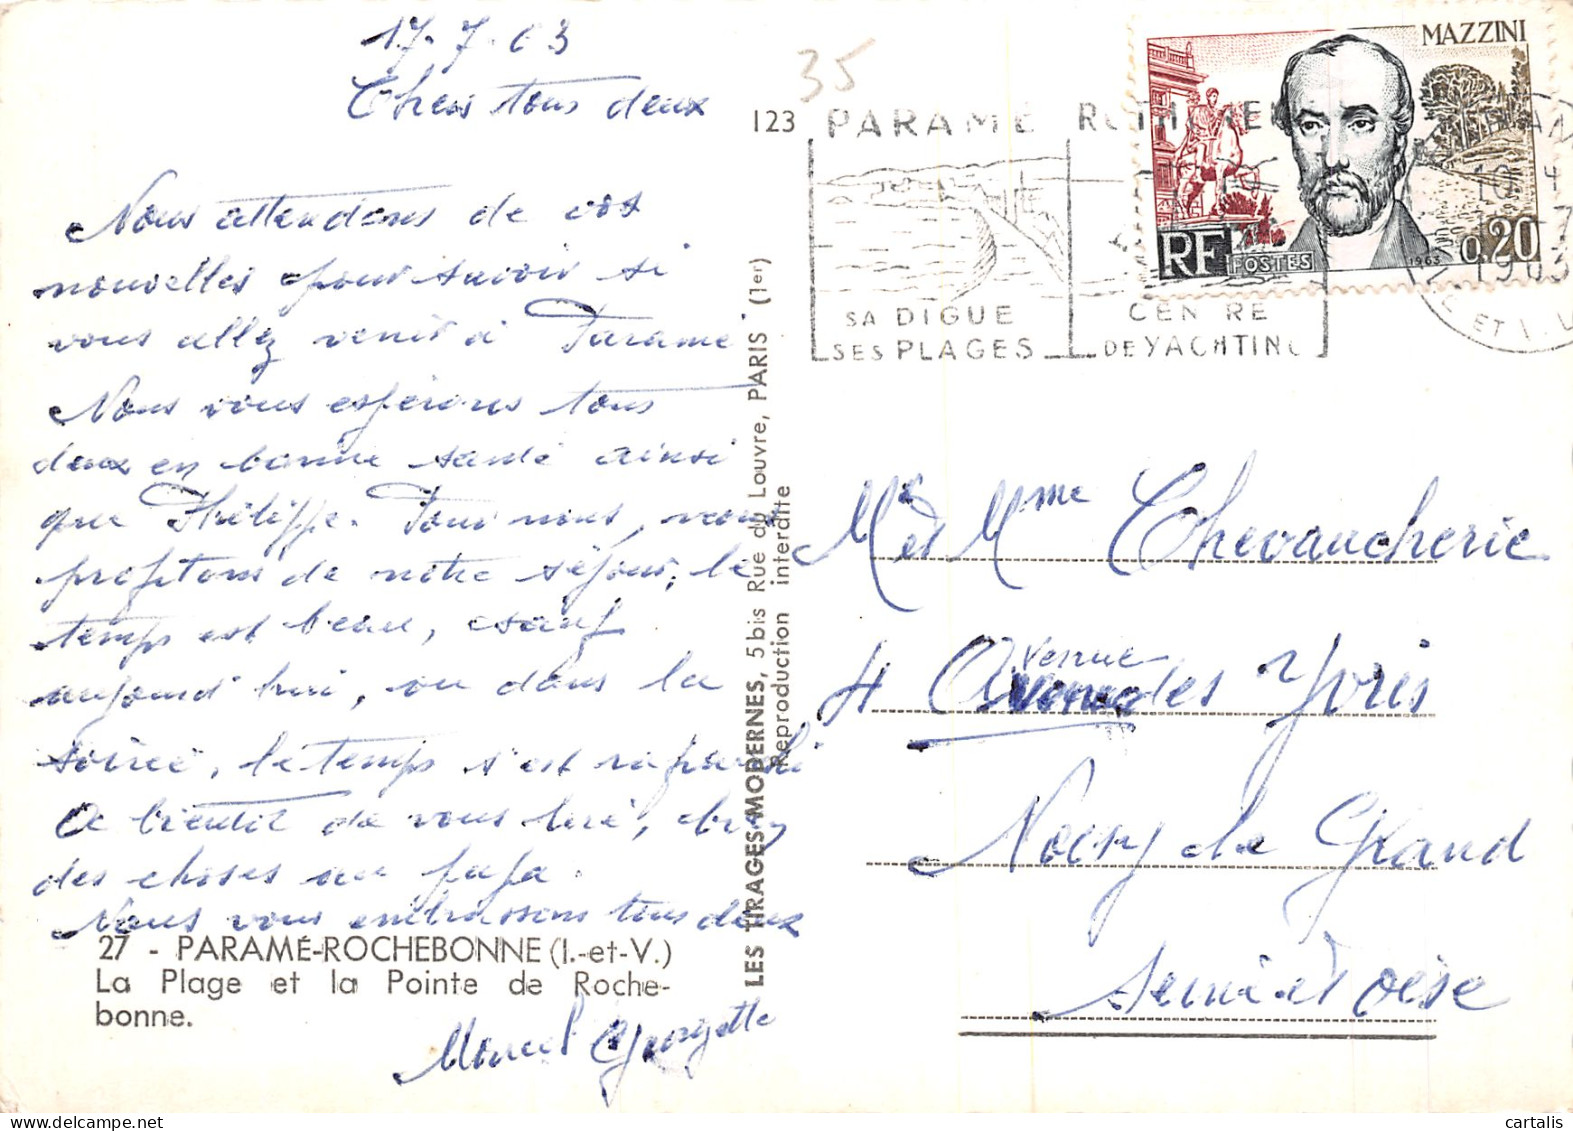 17-7-63
Chers tous deux
Nous attendons de vos
nouvelles pour savoir si
vous allez venir à Paramé
Nous vous espérons tous
deux en bonne santé ainsi
que Philippe. Pour nous, nous
profitons de notre séjour, le
temps est beau, sauf
aujourd'hui, ou dans la
soirée, le temps s'est rafraichi
A bientôt de vous lire, bien
des choses au papa.
Nous vous embrassons tous deux
Marcel Georgette
27 - PARAMÉ-ROCHEBONNE (I.-et-V.)
La Plage et la Pointe de Roche-
bonne.
LES TIRAGES MODERNES, 5 bis Rue du Louvre, PARIS (1er)
Reproduction interdite
123
35
PARAMÉ
SA DIGUE
SES PLAGES
CENTRE
DE YACHTING
ET I. V
1963
MAZZINI
RF POSTES 1963 0,20
Mr et Mme Chevaucherie
4 Avenue des Yris
Noisy le Grand
Seine et Oise
cartalis